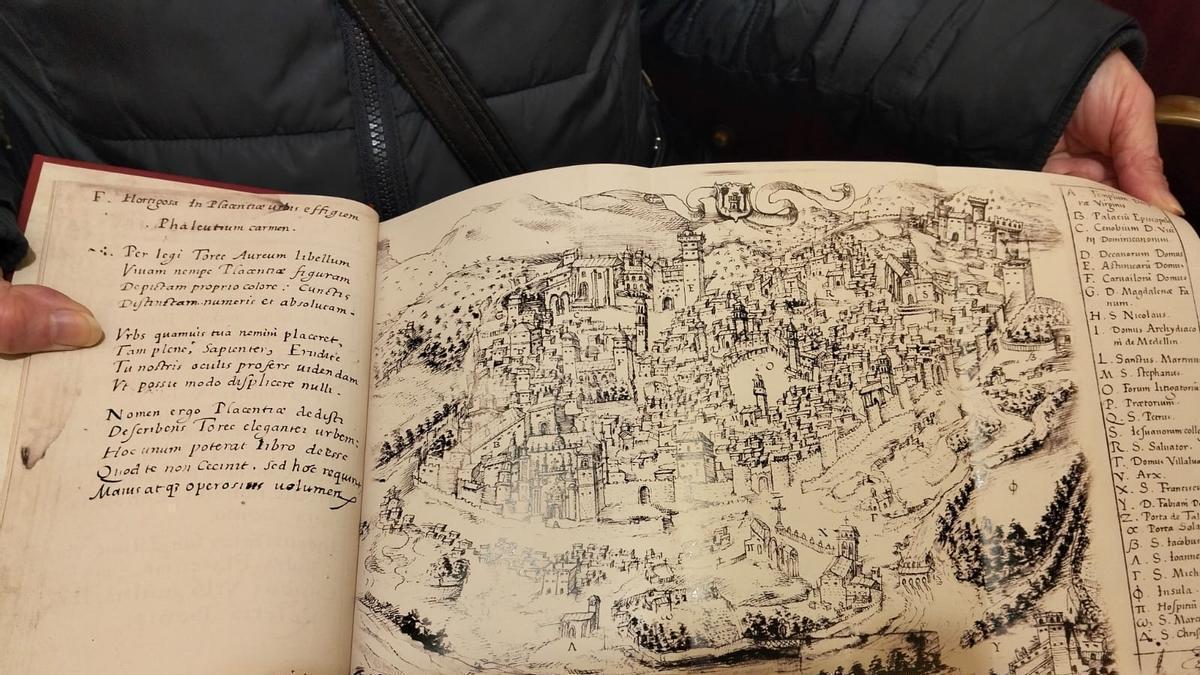 F. Hortigosa In Placentiæ urbis effigiem
Phaleutium carmen.
Per legi Toree Aureum libellum
Viuam nempe Placentiæ figuram
Depictam proprio colore: Cunctis
Distinctam numeris et absolucam.
Vrbs quamuis tua nemini placeret,
Tam plene, Sapienter, Erudite
Tu nostris oculis profers uidendam
Vt possit modo displicere nulli.
Nomen ergo Placentiæ dedisti
Describens Toree eleganter urbem:
Hoc unum poterat libro deesse
Quod te non Cecinit. Sed hoc
Maius atqȝ operosius volumen
A. Templum
ræ Virginis
B. Palaciũ Episcopal
C. Cenobium D. Vic
tij Dominicanorum.
D. Decanorum Domus
E. Domus
F. Domus
G. D. Magdalenæ Fa
num.
H. S Nicolaus.
I. Domus Archydiaco
ni de Medellin.
L. Sanctus. Martinus
M S. Stephanus.
O Forum litigatoriũ
P. Prætorium.
Q. S. Petrus.
S. Iesuanorum colle
R. S. Saluator.
T. Domus Villalua
V. Arx.
X. S. Franciscu
Y. D. Fabiani
Z. Porta de Tal
α Porta Sola
β. S. Iacobus
Λ. S. Ioanne
Γ. S. Mich
Φ. Insula
π. Hospitiũ
ω, S. Marc
Δ. S. Chris
O
N
Γ
Φ
β
Λ
Y